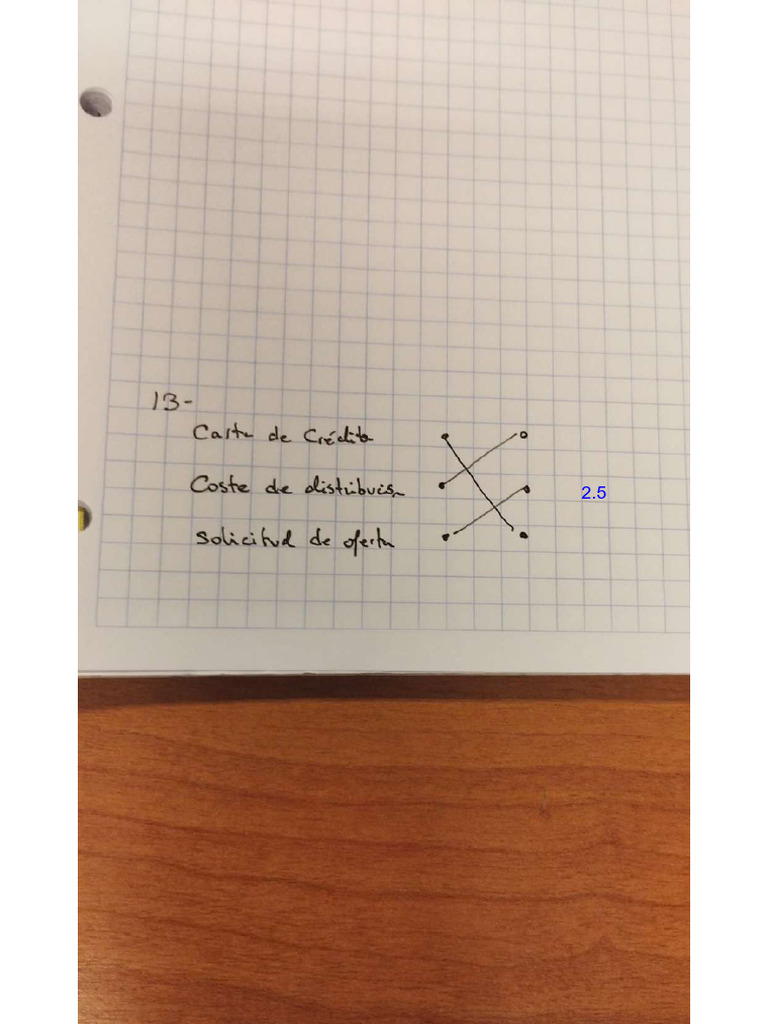 13-
Carta de Crédito
Coste de distribución
2.5
Solicitud de oferta